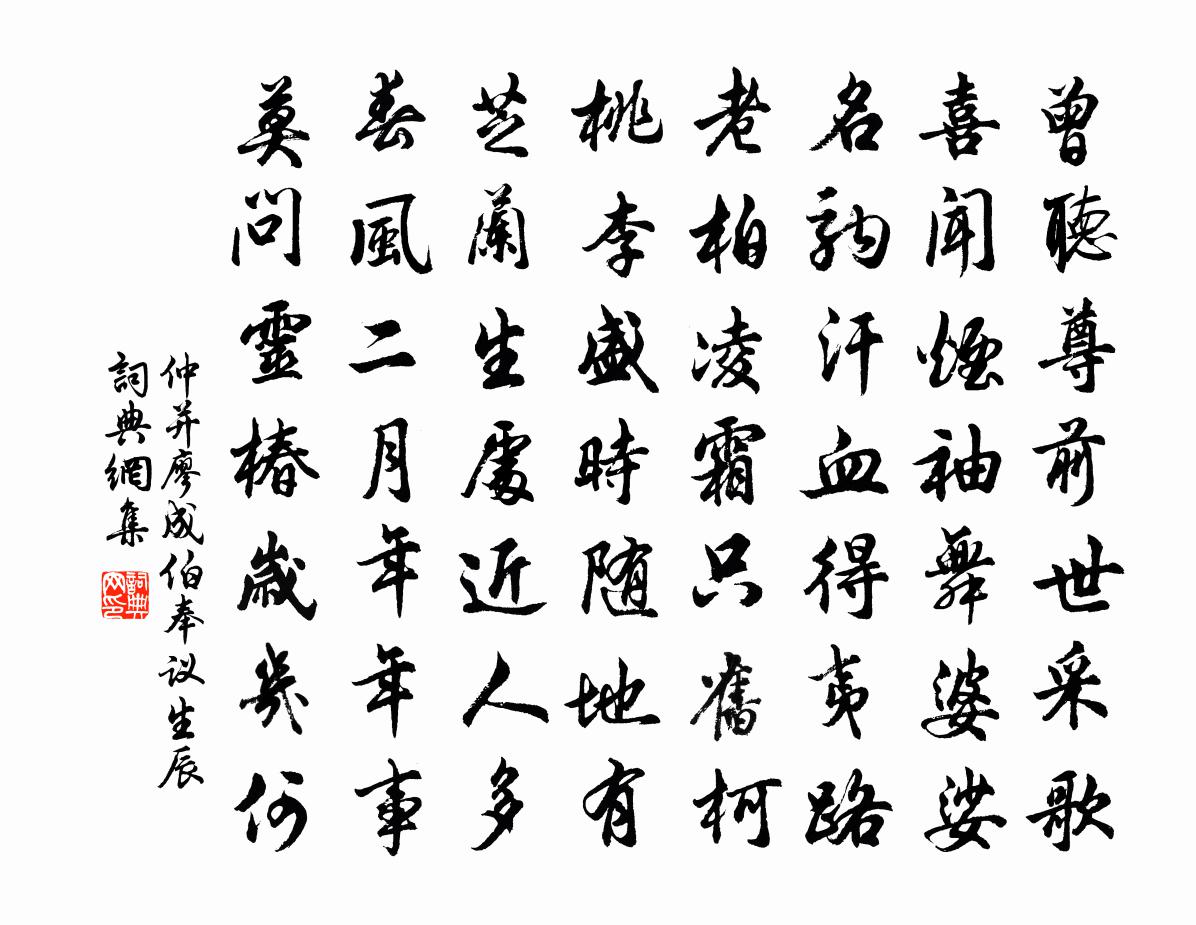 曾聽尊前世采歌
喜聞煙袖舞婆娑
名駒汗血得夷路
老柏凌霜只舊柯
桃李盛時随地有
芝蘭生處近人多
春風二月年年事
莫問靈椿歲幾何
仲并廖成伯奉议生辰
詞典網集
詞典网印